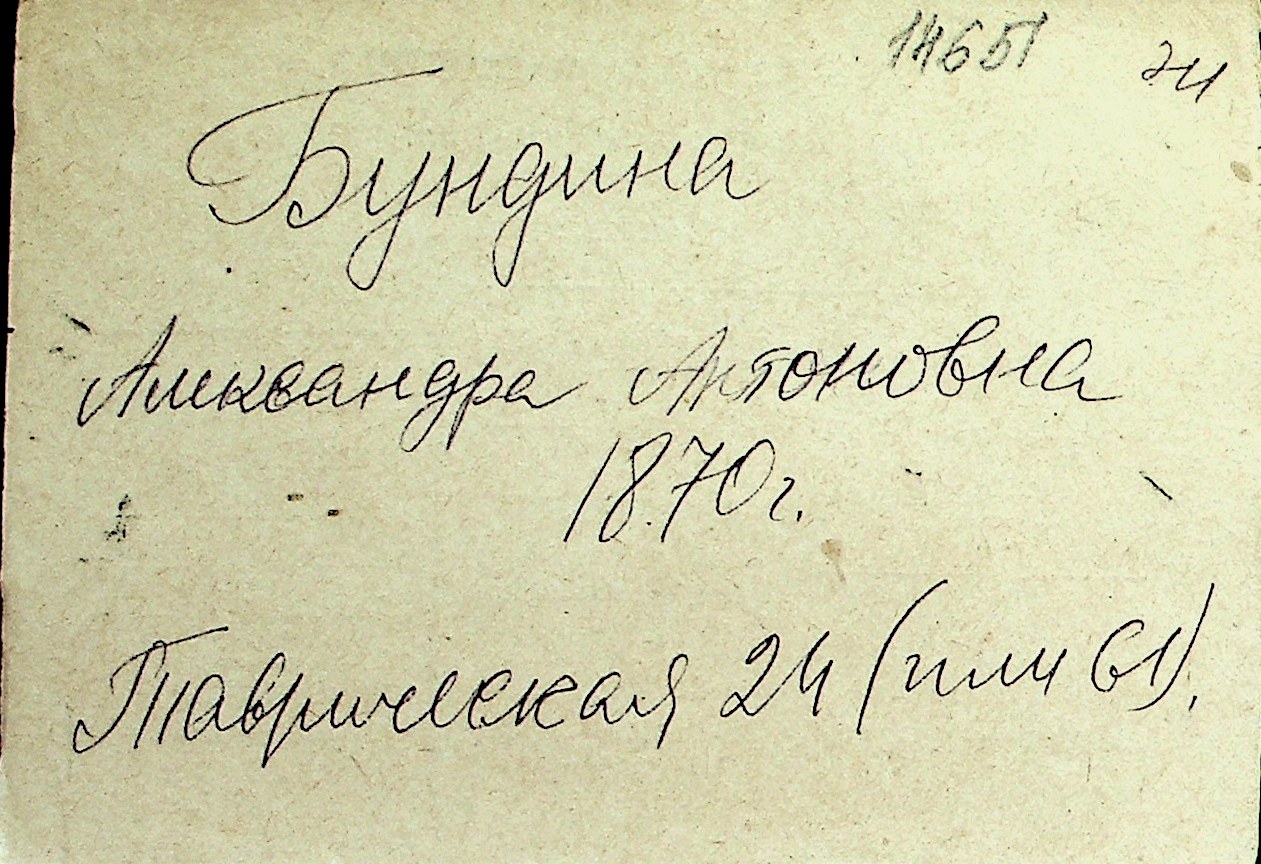 14651
Бундина
Александра Антоновна
1870г.
Таврическая 24 (или 61).